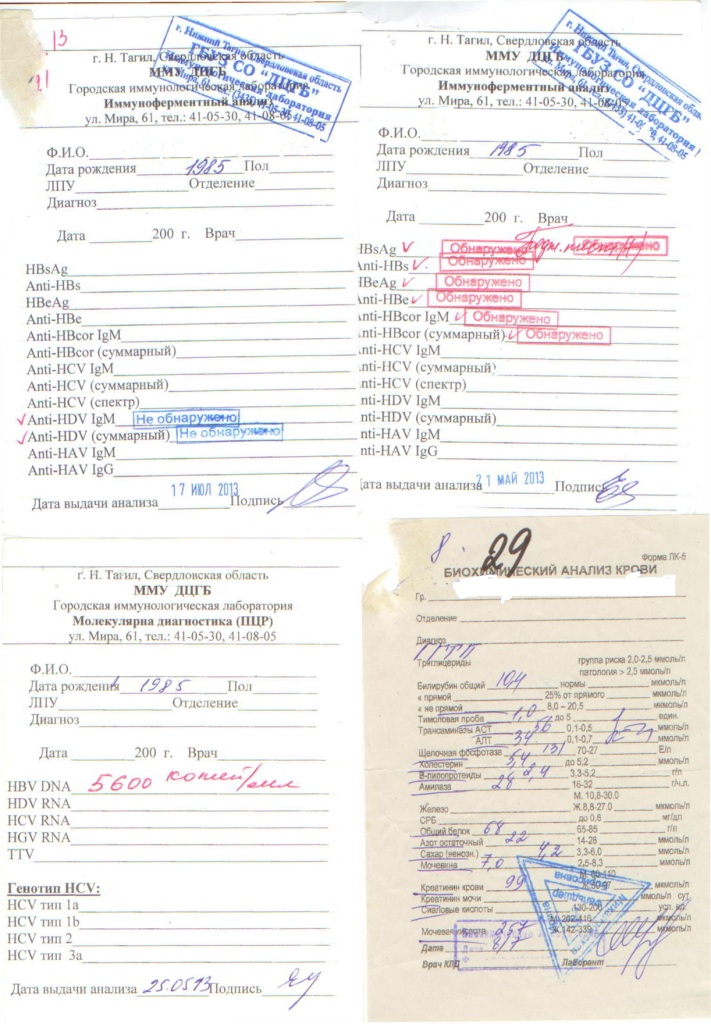 13
21
г. Н. Тагил, Свердловская область
ММУ ДЦГБ
Городская иммунологическая лаборатория
Иммуноферментный анализ
ул. Мира, 61, тел.: 41-05-30, 41-08-05
г. Нижний Тагил Свердловская область
ГБУЗ СО "ДЦГБ"
Иммунологическая лаборатория
Ф.И.О.
Дата рождения 1985 Пол
ЛПУ Отделение
Диагноз
Дата 200 г. Врач
HBsAg
Anti-HBs
HBeAg
Anti-HBe
Anti-HBcor IgM
Anti-HBcor (суммарный)
Anti-HCV IgM
Anti-HCV (суммарный)
Anti-HCV (спектр)
Anti-HDV IgM Не обнаружено
Anti-HDV (суммарный) Не обнаружено
Anti-HAV IgM
Anti-HAV IgG
Дата выдачи анализа 17 ИЮЛ 2013 Подпись
г. Н. Тагил, Свердловская область
ММУ ДЦГБ
Городская иммунологическая лаборатория
Иммуноферментный анализ
ул. Мира, 61, тел.: 41-05-30, 41-08-05
г. Нижний Тагил, Свердловская область
ГБУЗ СО "ДЦГБ"
Иммунологическая лаборатория
Ф.И.О.
Дата рождения 1985 Пол
ЛПУ Отделение
Диагноз
Дата 200 г. Врач
HBsAg Обнаружено Обнаружено
Anti-HBs Обнаружено
HBeAg Обнаружено
Anti-HBe Обнаружено
Anti-HBcor IgM Обнаружено
Anti-HBcor (суммарный) Обнаружено
Anti-HCV IgM
Anti-HCV (суммарный)
Anti-HCV (спектр)
Anti-HDV IgM
Anti-HDV (суммарный)
Anti-HAV IgM
Anti-HAV IgG
Дата выдачи анализа 21 МАЙ 2013 Подпись
г. Н. Тагил, Свердловская область
ММУ ДЦГБ
Городская иммунологическая лаборатория
Молекулярна диагностика (ПЦР)
ул. Мира, 61, тел.: 41-05-30, 41-08-05
Ф.И.О.
Дата рождения 1985 Пол
ЛПУ Отделение
Диагноз
Дата 200 г. Врач
HBV DNA 5600 копий/мл
HDV RNA
HCV RNA
HGV RNA
TTV
Генотип HCV:
HCV тип 1a
HCV тип 1b
HCV тип 2
HCV тип 3a
Дата выдачи анализа 25.05.13 Подпись
8. 29
Форма ЛК-5
БИОХИМИЧЕСКИЙ АНАЛИЗ КРОВИ
Гр.
Отделение
Диагноз
Триглицериды группа риска 2,0-2,5 ммоль/л
патология > 2,5 ммоль/л
Билирубин общий нормы мкмоль/л
« прямой 25% от прямого мкмоль/л
« не прямой 8,0 – 20,5 мкмоль/л
Тимоловая проба 1,0 до 5 един.
Трансаминазы АСТ 0,1-0,5 ммоль/л
АЛТ 34 0,1-0,7 ммоль/л
Щелочная фосфотаза 131 70-27 Е/л
Холестерин 5,4 до 5,2 ммоль/л
В-липопротеиды 3,3-5,2 г/л
Амилаза 28 16-32 г/ч.л.
М. 10,8-30.0
Железо Ж.8,8-27.0 мкмоль/л
СРБ до 0,6 мг/дл
Общий белок 68 65-85 г/л
Азот остаточный 22 14-28 ммоль/л
Сахар (венозн.) 4,2 3,3-6,0 ммоль/л
Мочевина 7,0 2,5-8,3 ммоль/л
Креатинин крови 99 мкмоль/л
Креатинин мочи ммоль/л сут
Сиаловые кислоты усл. ед
Мочевая кислота 257 Ж.142-339 мкмоль/л
Дата 8/7
Врач КЛД Лаборант